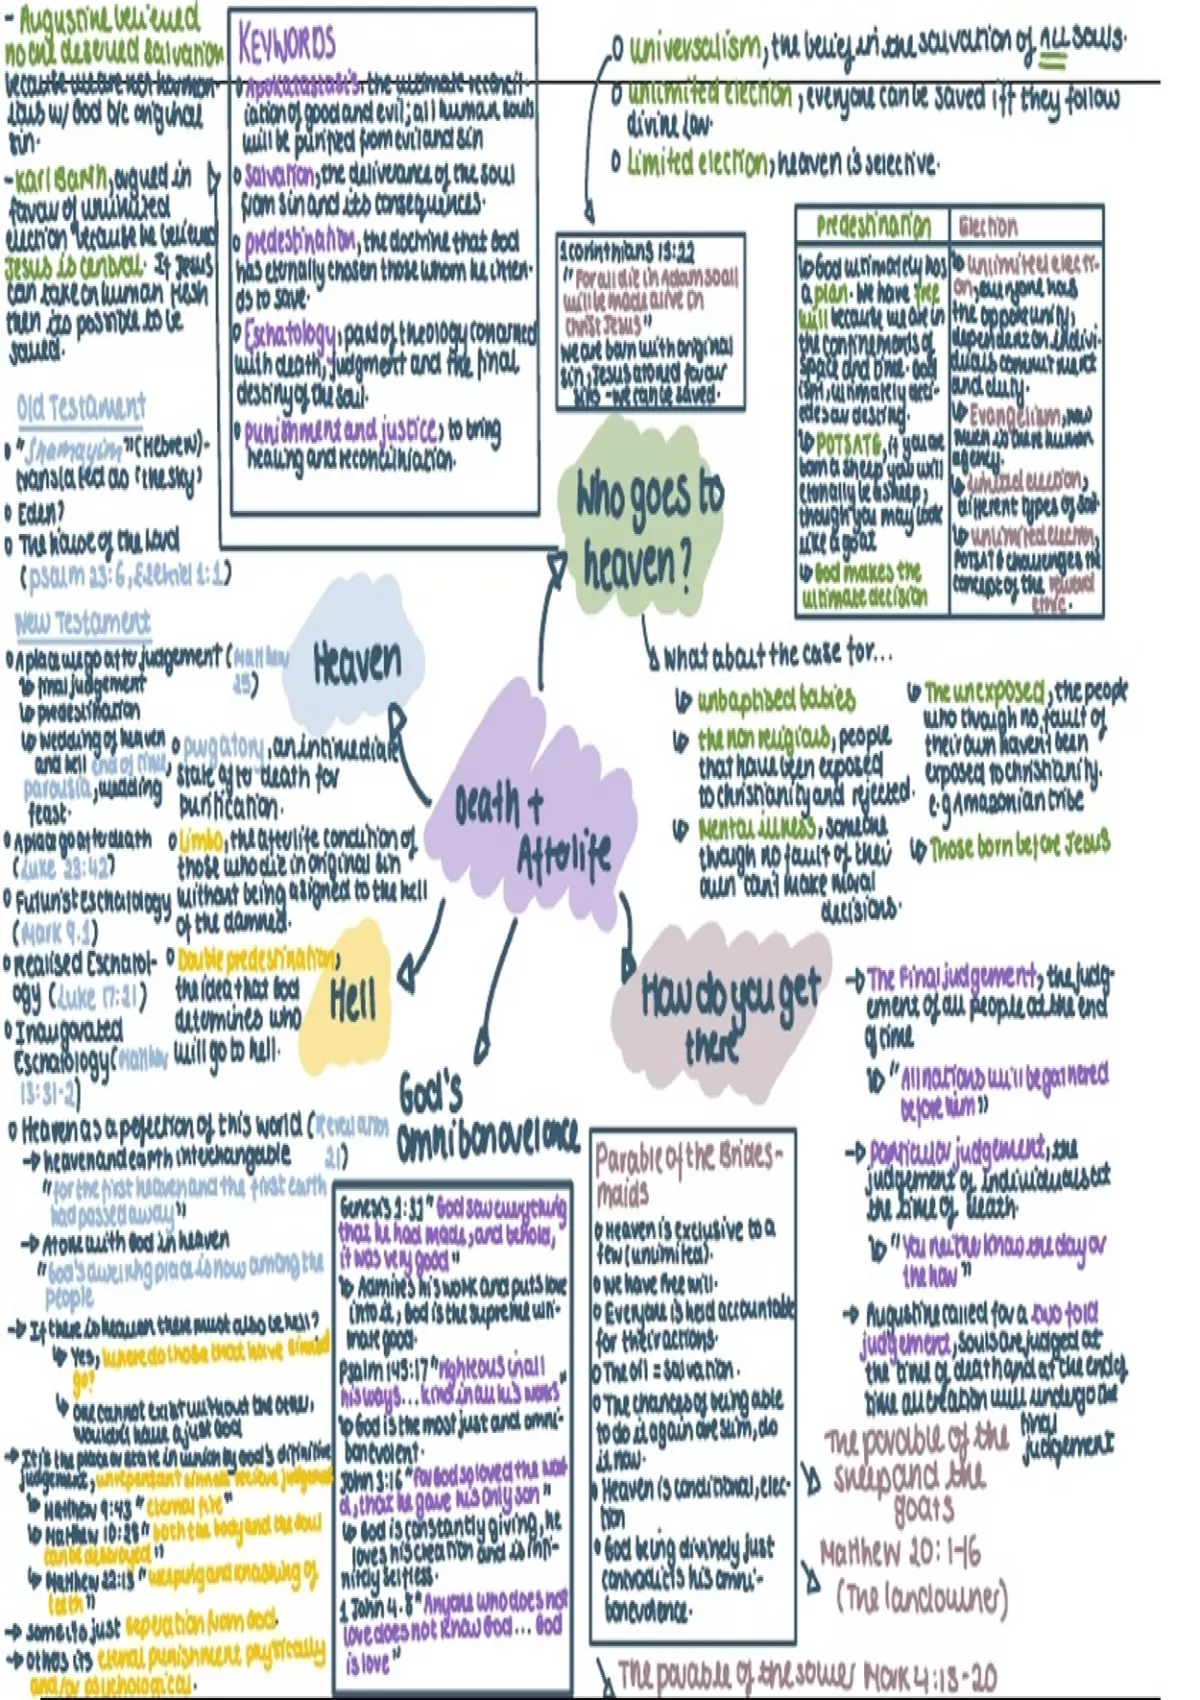 - Augustine believed
no one deserved salvation
because we are not harmon-
ious w/ God b/c original
sin.
- Karl Barth, argued in
favour of unlimited
election because he believed
Jesus is central. If Jesus
can take on human flesh
then its possible to be
saved.
KEYWORDS
Apokatastasis, the ultimate reconcil-
iation of good and evil; all human souls
will be purified from evil and sin
Salvation, the deliverance of the soul
from sin and its consequences.
predestination, the doctrine that God
has eternally chosen those whom he inten-
ds to save.
Eschatology, part of theology concerned
with death, judgment and the final
destiny of the soul.
punishment and justice, to bring
healing and reconciliation.
universalism, the belief in the salvation of ALL souls.
unlimited election, everyone can be saved iff they follow
divine law.
Limited election, heaven is selective.
1 corinthians 15:22
"For all die in Adam so all
will be made alive in
Christ Jesus"
we are born with original
sin, Jesus atoned for our
sins - we can be saved.
Predestination
God ultimately has
a plan. We have free
will because we are in
the confinements of
space and time. God
ultimately deci-
des our destiny.
POTSATG, if you are
born a sheep you will
eternally be a sheep,
though you may look
like a goat
God makes the
ultimate decision
Election
unlimited electi-
on, everyone has
the opportunity,
dependent on indivi-
duals commitment
and duty.
Evangelism, now
there is human
agency.
limited election,
different types of soil.
unlimited election,
POTSATG challenges the
concept of the
ethic.
Who goes to
heaven?
What about the case for...
unbaptised babies
the non religious, people
that have been exposed
to christianity and rejected.
Mental illness, someone
though no fault of their
own can't make moral
decisions.
The unexposed, the people
who though no fault of
their own haven't been
exposed to christianity.
e.g Amazonian tribe
Those born before Jesus
Old Testament
"Shamayim" (Hebrew)-
translated as 'the sky'
Eden?
The house of the Lord
(psalm 23:6, Ezekiel 1:1)
New Testament
A place we go after judgement (Matthew
25)
final judgement
predestination
wedding of heaven
and hell end of time,
parousia, wedding
feast.
A place go after death
(Luke 23:42)
Futurist Eschatology
(Mark 9.1)
Realised Eschatol-
ogy (Luke 17:21)
Inaugurated
Eschatology (Matthew
13:31-2)
Heaven as a perfection of this world (Revelation
21)
heaven and earth interchangable
"for the first heaven and the first earth
had passed away"
Atone with God in heaven
"God's dwelling place is now among the
people
If there is heaven there must also be hell?
Yes, where do those that have sinned
go?
One cannot exist without the other,
wouldn't have a just God
It is the place or state in union by God's definitive
judgement, unrepentant sinners receive judgement
Matthew 9:43 "eternal fire"
Matthew 10:28 "both the body and the soul
can be destroyed"
Matthew 22:13 "weeping and gnashing of
teeth"
some its just seperation from God.
others its eternal punishment physically
and/or psychological.
Heaven
purgatory, an intimediate
state after death for
purification.
Limbo, the afterlife condition of
those who die in original sin
without being asigned to the hell
of the damned.
Double predestination,
the idea that God
determines who
will go to hell.
Hell
Death +
Afterlife
God's
Omnibenovelance
Genesis 1:31 "God saw everything
that he had made, and behold,
it was very good"
Admires his work and puts love
into it, God is the supreme ulti-
mate good.
Psalm 145:17 "righteous in all
his ways... kind in all his works"
God is the most just and omni-
benevolent.
John 3:16 "For God so loved the worl-
d, that he gave his only son"
God is constantly giving, he
loves his creation and is infi-
nitely selfless.
1 John 4.8 "Anyone who does not
love does not know God... God
is love"
How do you get
there
Parable of the Brides-
maids
Heaven is exclusive to a
few (unlimited).
We have free will.
Everyone is held accountable
for their actions.
The oil = salvation.
The chances of being able
to do it again are slim, do
it now.
Heaven is conditional, elec-
tion
God being divinely just
contradicts his omni-
benevolence.
The Final judgement, the judg-
ement of all people at the end
of time
"All nations will be gathered
before him"
Particular judgement, the
judgement of individuals at
the time of death.
"You neither know the day or
the hour"
Augustine called for a two fold
judgement, souls are judged at
the time of death and at the end of
time all creation will undergo the
final
judgement
The parable of the
sheep and the
goats
Matthew 20: 1-16
(The landowner)
The parable of the sower Mark 4:13-20